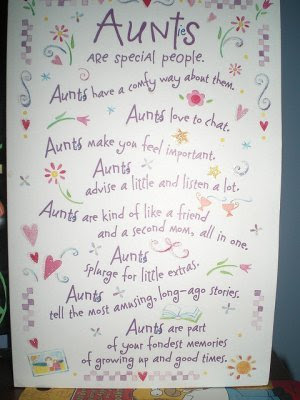 AUNTieS
ARE SPECIAL PEOPLE.
Aunts have a comfy way about them.
Aunts love to chat.
Aunts make you feel important.
Aunts
advise a little and listen a lot.
Aunts are kind of like a friend
and a second mom, all in one.
Aunts
splurge for little extras.
Aunts
tell the most amusing, long-ago stories.
Aunts are part
of your fondest memories
of growing up and good times.